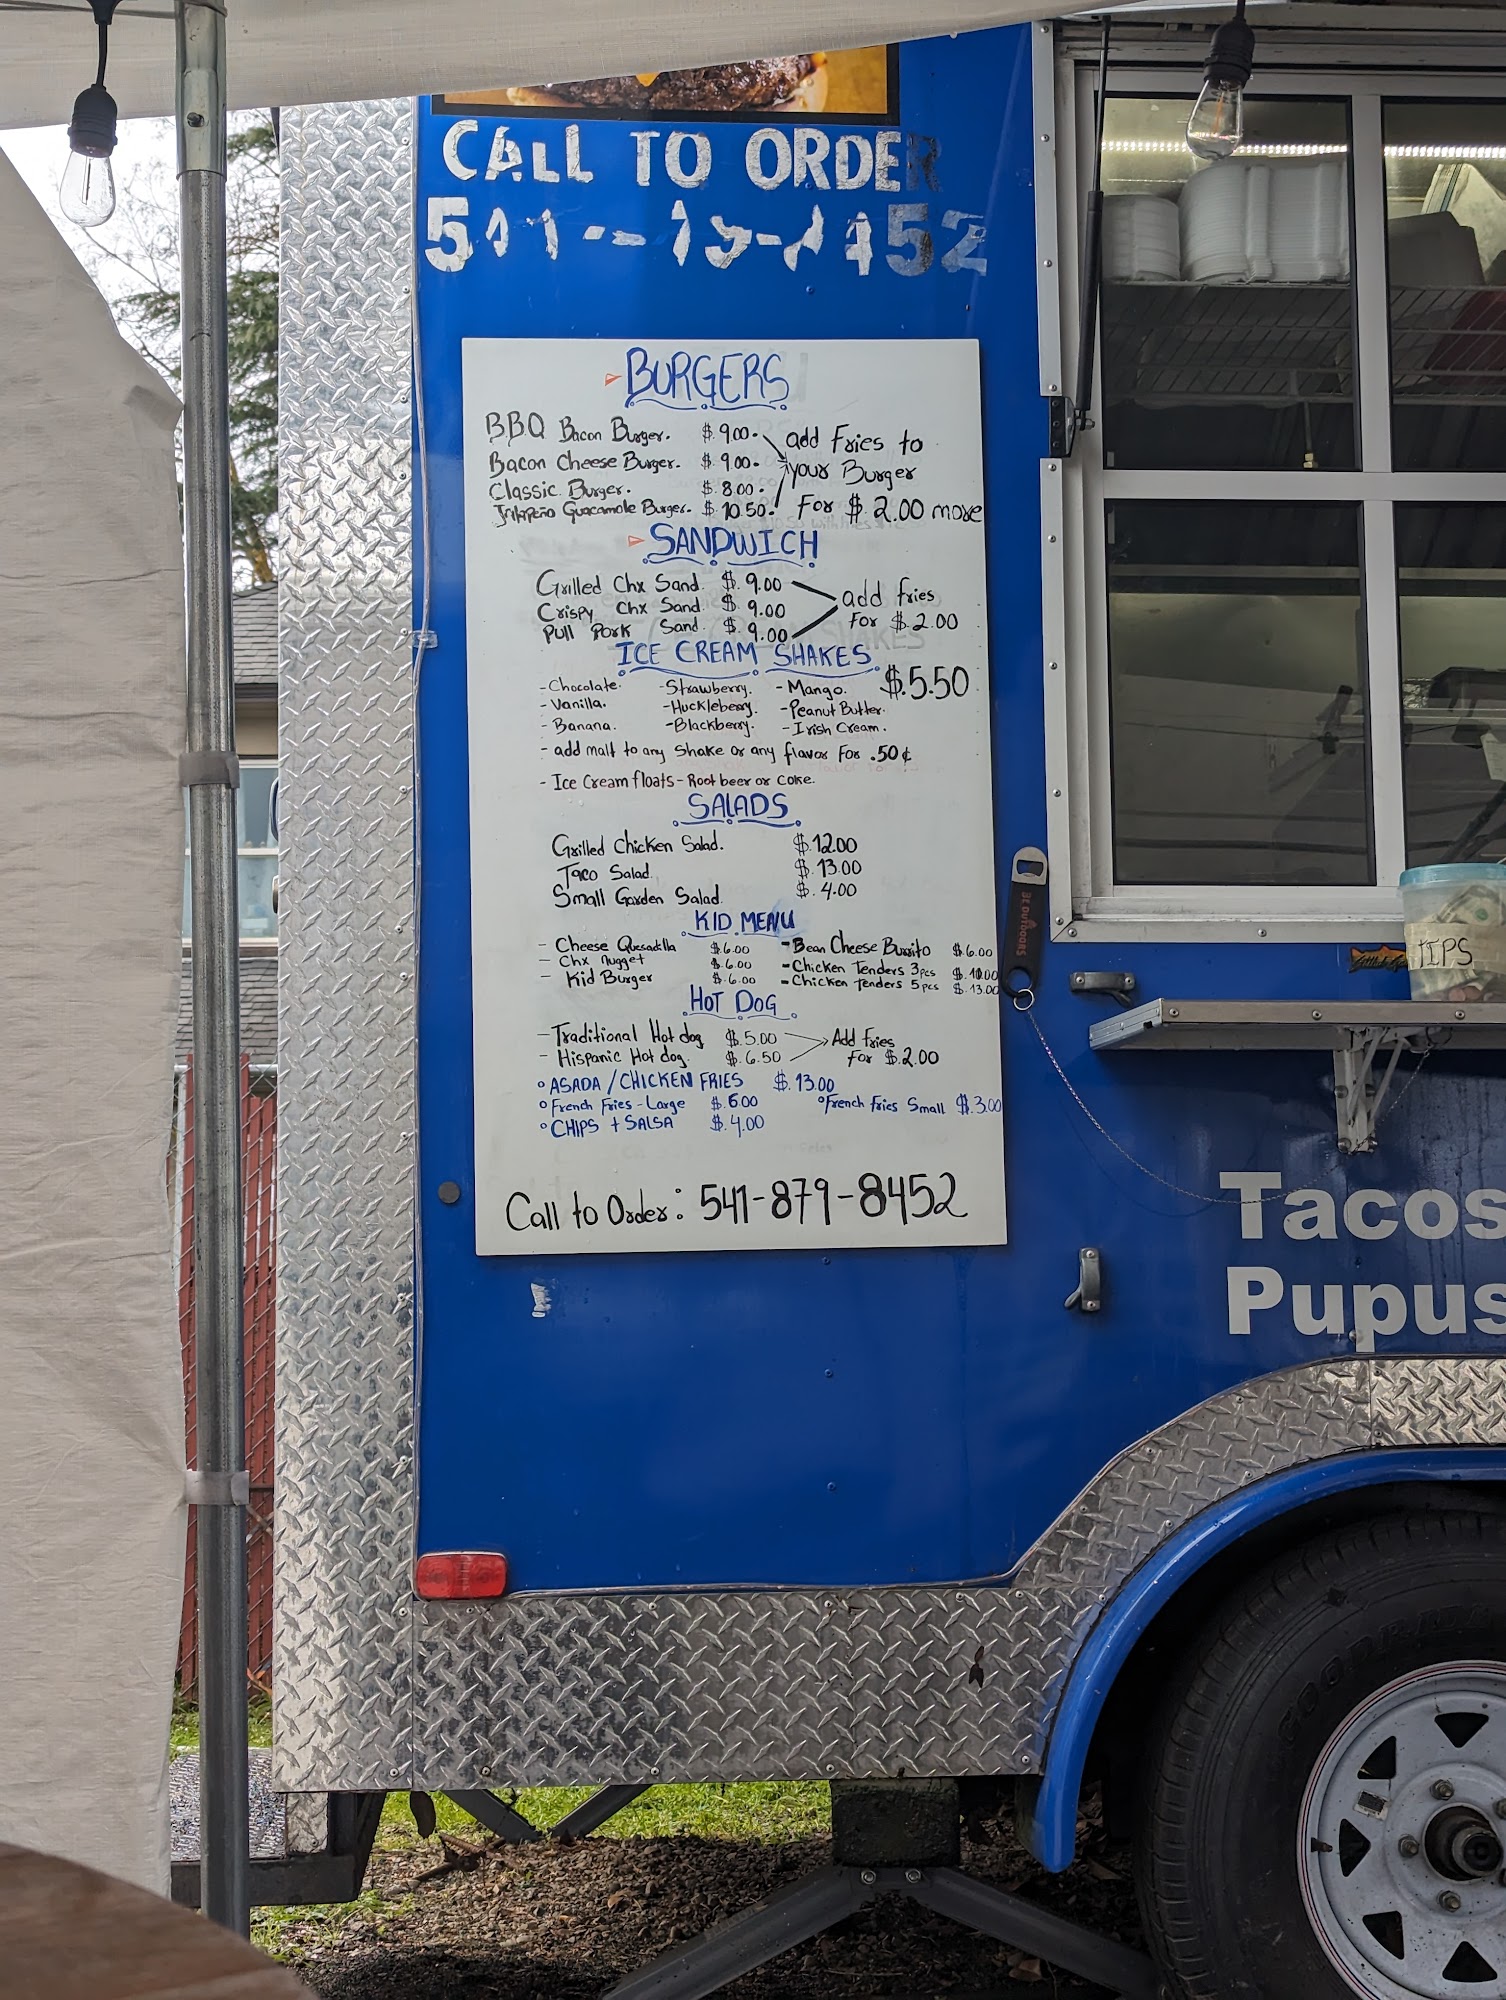 CALL TO ORDER
BURGERS
B.B.Q Bacon Burger. $.9.00.
Bacon Cheese Burger. $.9.00.
Classic Burger. $.8.00.
Jalapeño Guacamole Burger. $.10.50.
add Fries to
your Burger
For $.2.00 more
SANDWICH
Grilled Chx Sand. $.9.00
Crispy Chx Sand. $.9.00
Pull Pork Sand. $.9.00
add fries
For $.2.00
ICE CREAM SHAKES
$.5.50
-Chocolate. -Strawberry. -Mango.
-Vanilla. -Huckleberry. -Peanut Butter.
-Banana. -Blackberry. -Irish Cream.
- add malt to any Shake or any flavor For .50¢
- Ice Cream floats - Root beer or coke.
SALADS
Grilled Chicken Salad. $.12.00
Taco Salad. $.13.00
Small Garden Salad. $.4.00
KID MENU
- Cheese Quesadilla $.6.00 -Bean Cheese Burrito $.6.00
- Chx nugget $.6.00 -Chicken Tenders 3pcs $.10.00
- Kid Burger $.6.00 -Chicken Tenders 5pcs $.13.00
HOT DOG
-Traditional Hot dog $.5.00
- Hispanic Hot dog. $.6.50
Add fries
For $.2.00
° ASADA / CHICKEN FRIES $.13.00
° French Fries - Large $.6.00 °French Fries Small $.3.00
° CHIPS + SALSA $.4.00
Call to Order: 541-879-8452
TIPS
Tacos
Pupus